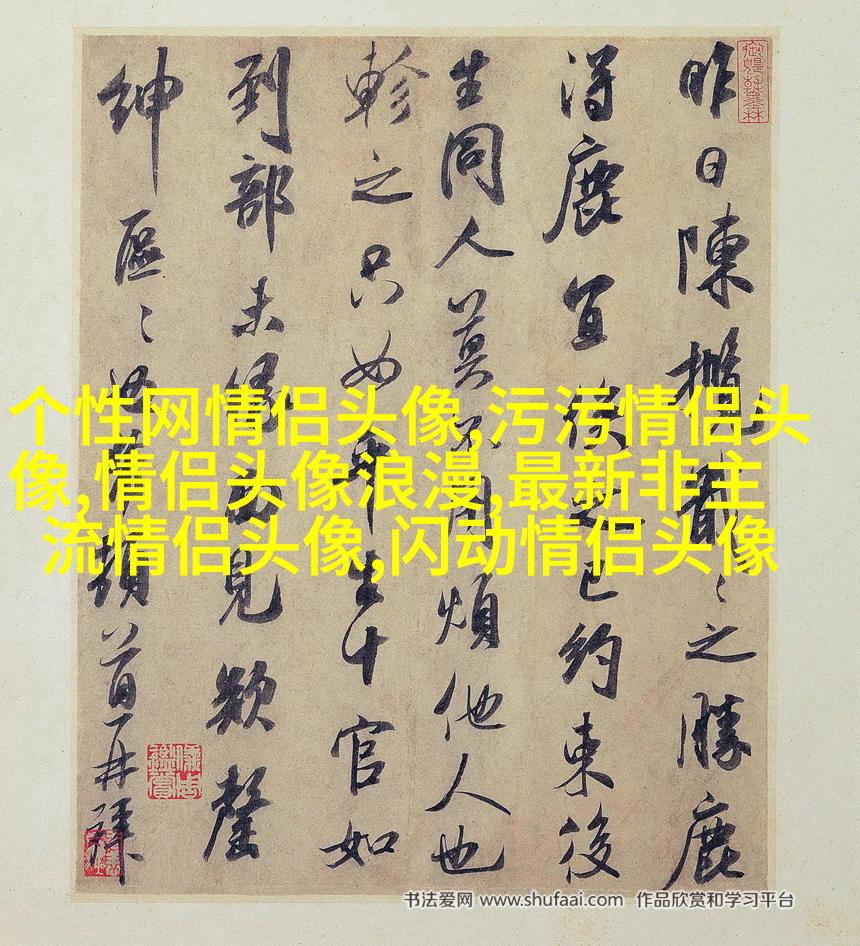 昨日陳戢〻之勝鹿
得鹿宜已約束後
生同人莫不用煩他人也
軫之只如平生十官如
到部未緣面見欲罄
紳區〻頓首再拜
个性网情侣头像,污污情侣头
像,情侣头像浪漫,最新非主
流情侣头像,闪动情侣头像
书法爱网 www.shufaai.com 作品欣赏和学习平台